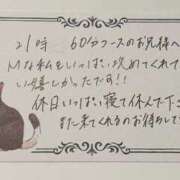 21時 60分コースのお兄様へ
Mな私をいっぱい攻めてくれて
い嬉しかったです!!
休日いっぱい寝て休んで下さ
また来てくれるのお待ちして